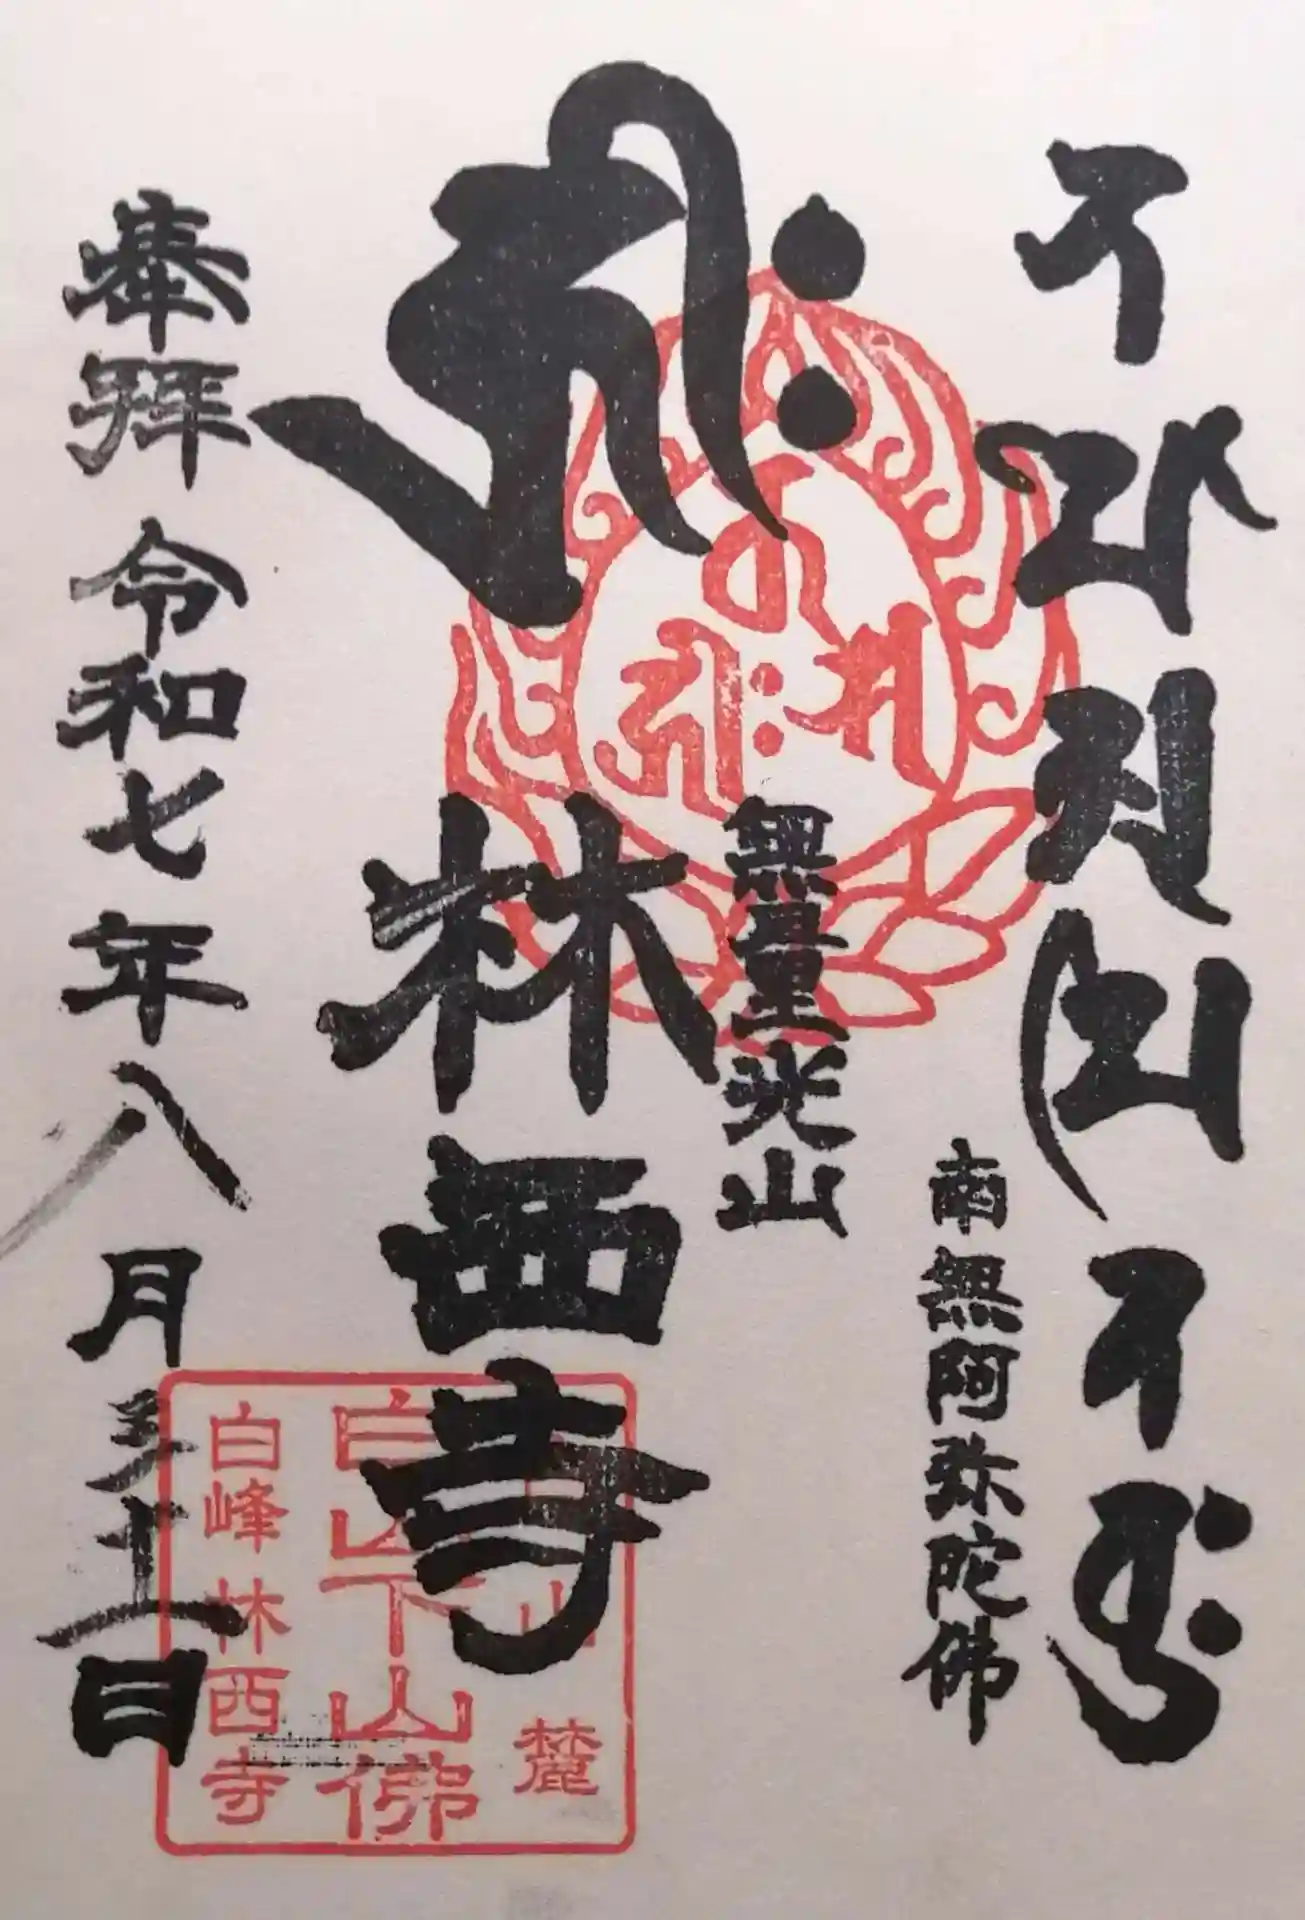 南無阿弥陀佛
𑖮𑖿𑖨𑖱𑖾
無量光山
林西寺
奉拜 令和七年八月三十一日
白山麓
白山下山佛
白峰林西寺